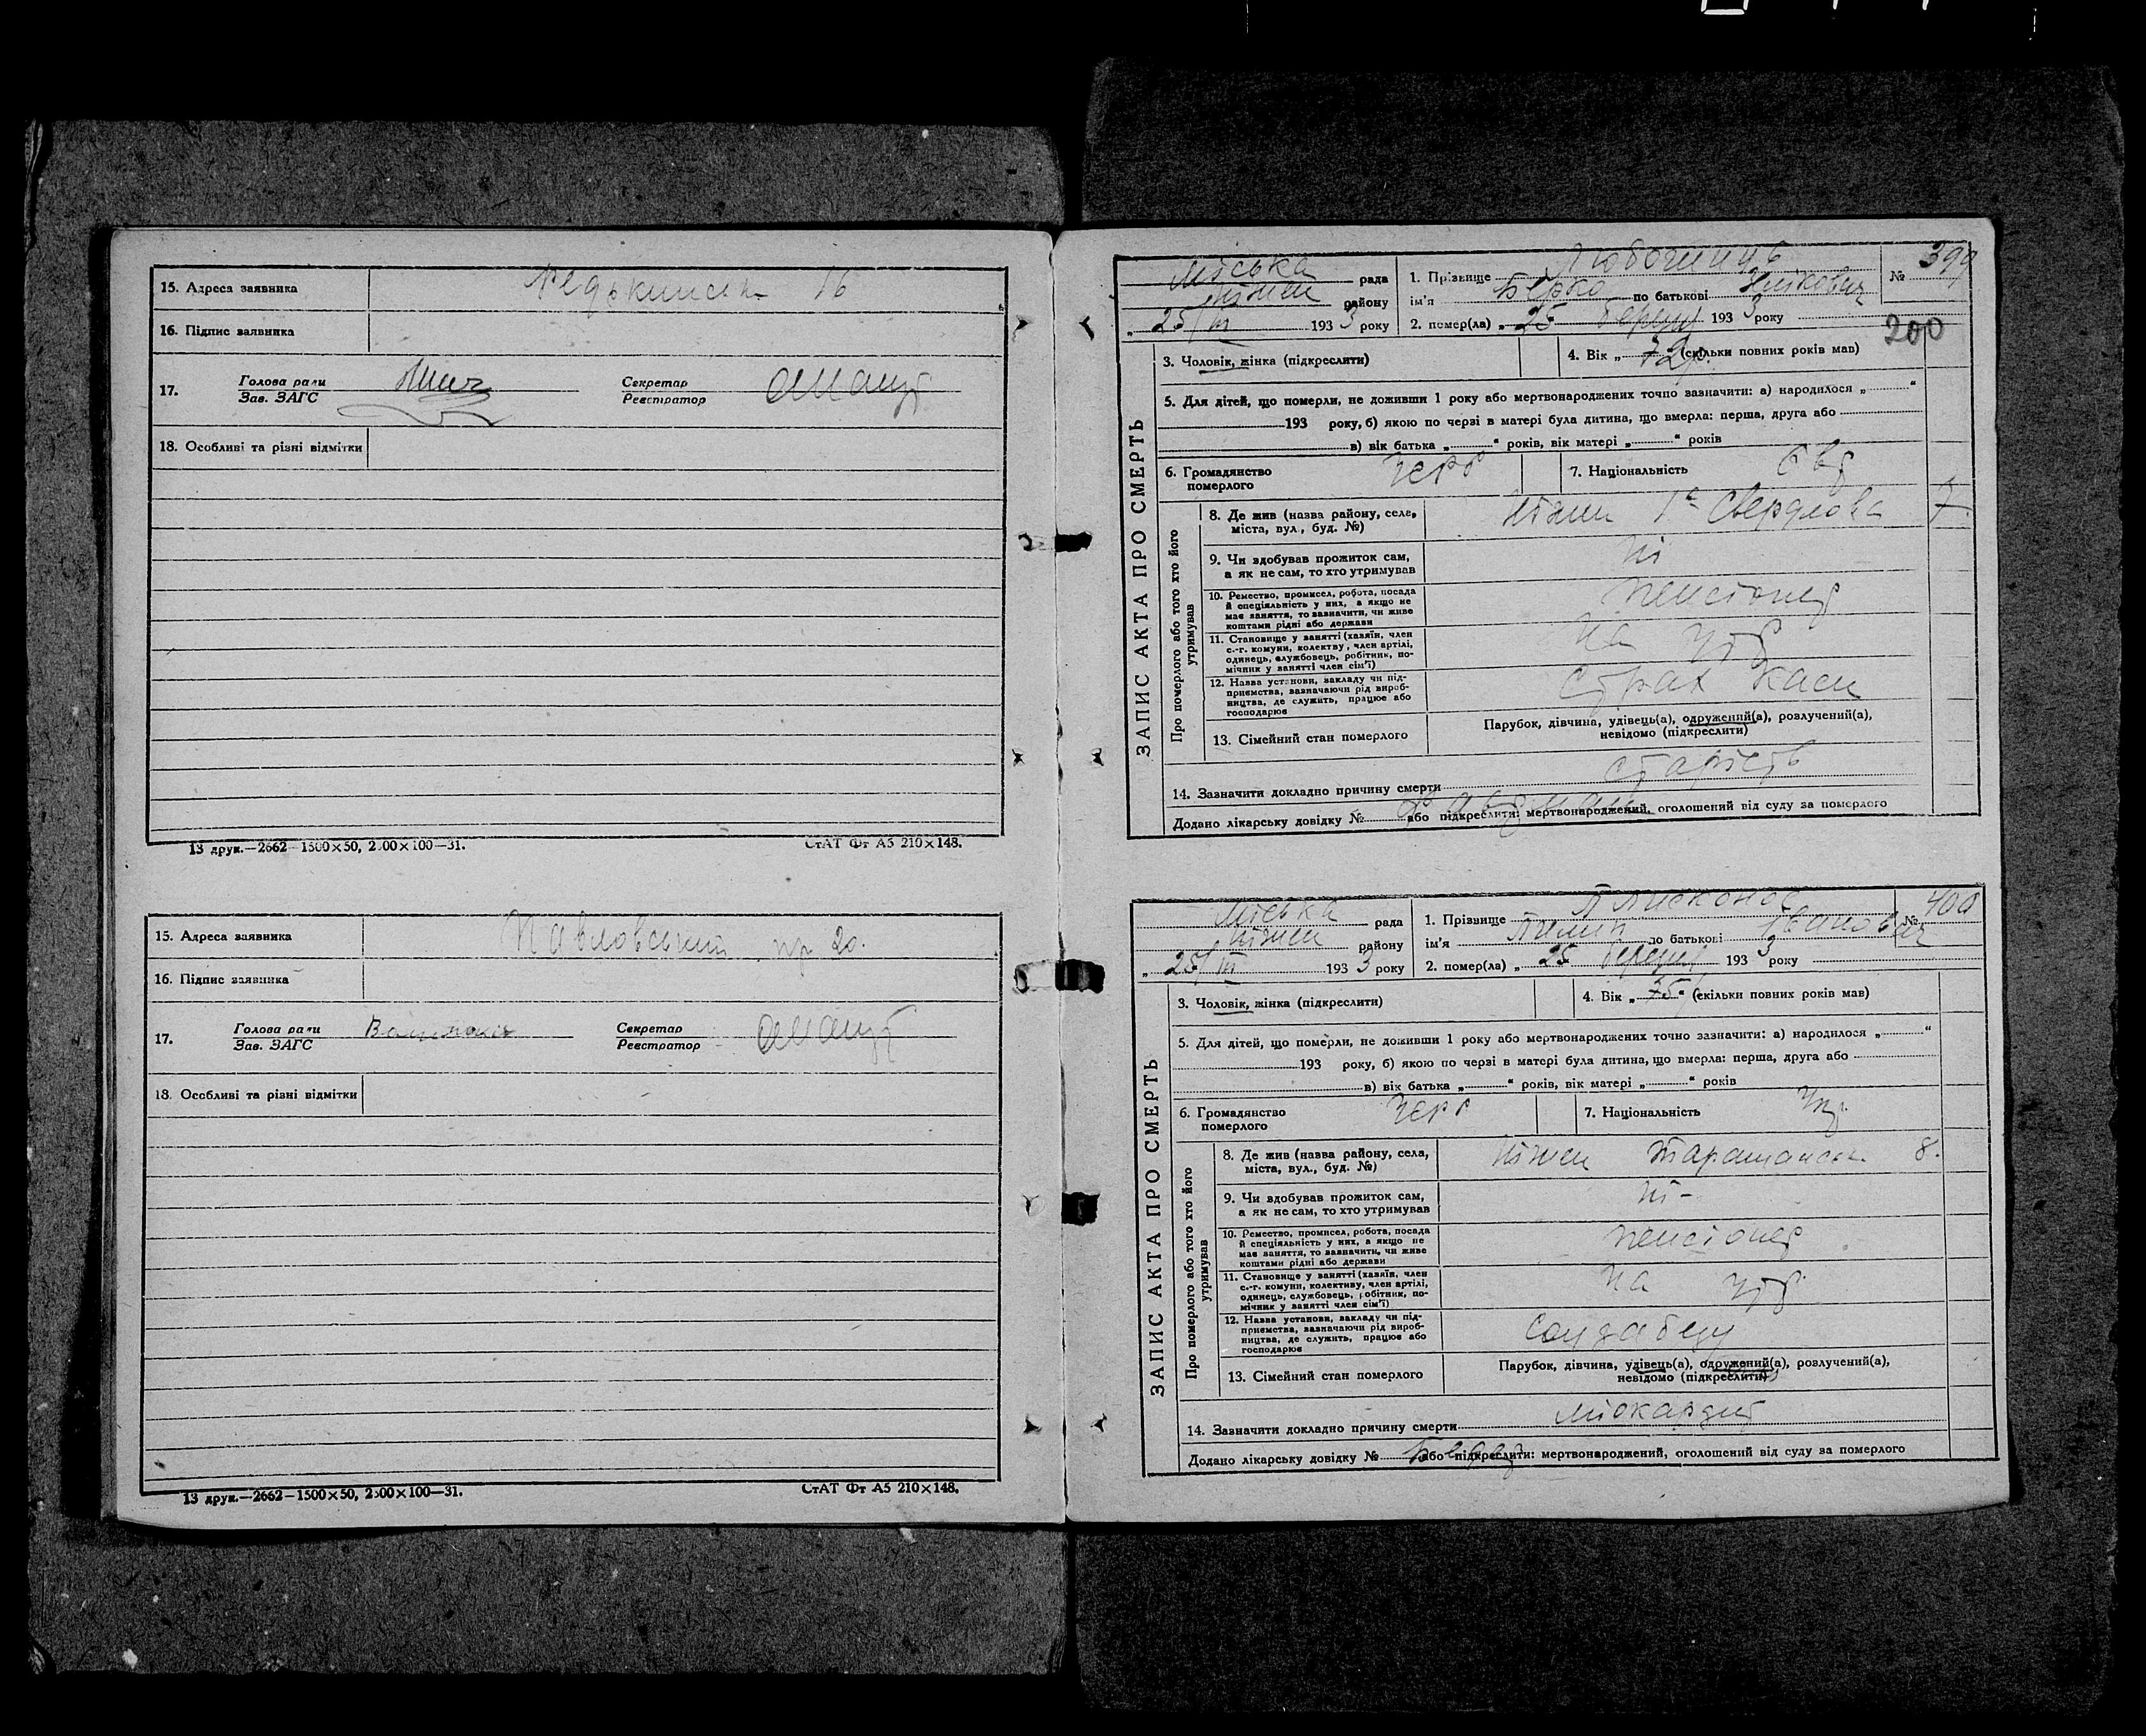 15. Адреса заявника Редькинська 16
16. Підпис заявника
17. Голова ради Секретар
Зав. ЗАГС Реєстратор
18. Особливі та різні відмітки
13 друк.—2662—1500×50, 2500×100—31. СтАТ Фт А5 210×148.
15. Адреса заявника Павловський пр 20.
16. Підпис заявника
17. Голова ради Секретар
Зав. ЗАГС Реєстратор
18. Особливі та різні відмітки
13 друк.—2662—1500×50, 2500×100—31. СтАТ Фт А5 210×148.
ЗАПИС АКТА ПРО СМЕРТЬ
Міська рада
Ніжин району
„ 25/III 1933 року
1. Прізвище
№ 399
ім'я Берко по батькові
2. помер(ла) „ 25 березня 1933 року
200
3. Чоловік, жінка (підкреслити) 4. Вік „ 72 р. (скільки повних років мав)
5. Для дітей, що померли, не доживши 1 року або мертвонароджених точно зазначити: а) народилося „ “
193 року, б) якою по черзі в матері була дитина, що вмерла: перша, друга або
в) вік батька „ “ років, вік матері „ “ років
6. Громадянство
померлого
7. Національність Євр
Про померлого або того хто його
утримував
8. Де жив (назва району, села,
міста, вул., буд. №)
Ніжин Свердлова 7.
9. Чи здобував прожиток сам,
а як не сам, то хто утримував
ні
10. Ремество, промисел, робота, посада
й спеціяльність у них, а якщо не
має заняття, то зазначити, чи живе
коштами рідні або держави
пенсіонер
11. Становище у занятті (хазяїн, член
с.-г. комуни, колективу, член артілі,
одинець, службовець, робітник, по-
мічник у занятті член сім'ї)
на утр
12. Назва установи, закладу чи під-
приємства, зазначаючи рід вироб-
ництва, де служить, працює або
господарює
Страх каси
13. Сімейний стан померлого
Парубок, дівчина, удівець(а), одружений(а), розлучений(а),
невідомо (підкреслити)
14. Зазначити докладно причину смерти старість
Додано лікарську довідку № або підкреслити: мертвонароджений, оголошений від суду за померлого
ЗАПИС АКТА ПРО СМЕРТЬ
Міська рада
Ніжин району
„ 25/III 1933 року
1. Прізвище
№ 400
ім'я Пилип по батькові Іванович
2. помер(ла) „ 25 березня 1933 року
3. Чоловік, жінка (підкреслити) 4. Вік „ 75 “ (скільки повних років мав)
5. Для дітей, що померли, не доживши 1 року або мертвонароджених точно зазначити: а) народилося „ “
193 року, б) якою по черзі в матері була дитина, що вмерла: перша, друга або
в) вік батька „ “ років, вік матері „ “ років
6. Громадянство
померлого
7. Національність Укр.
Про померлого або того хто його
утримував
8. Де жив (назва району, села,
міста, вул., буд. №)
Ніжин Таращанськ. 8.
9. Чи здобував прожиток сам,
а як не сам, то хто утримував
ні –
10. Ремество, промисел, робота, посада
й спеціяльність у них, а якщо не
має заняття, то зазначити, чи живе
коштами рідні або держави
пенсіонер
11. Становище у занятті (хазяїн, член
с.-г. комуни, колективу, член артілі,
одинець, службовець, робітник, по-
мічник у занятті член сім'ї)
на утр.
12. Назва установи, закладу чи під-
приємства, зазначаючи рід вироб-
ництва, де служить, працює або
господарює
Соцзабезу
13. Сімейний стан померлого
Парубок, дівчина, удівець(а), одружений(а), розлучений(а),
невідомо (підкреслити)
14. Зазначити докладно причину смерти міокардит
Додано лікарську довідку № або підкреслити: мертвонароджений, оголошений від суду за померлого